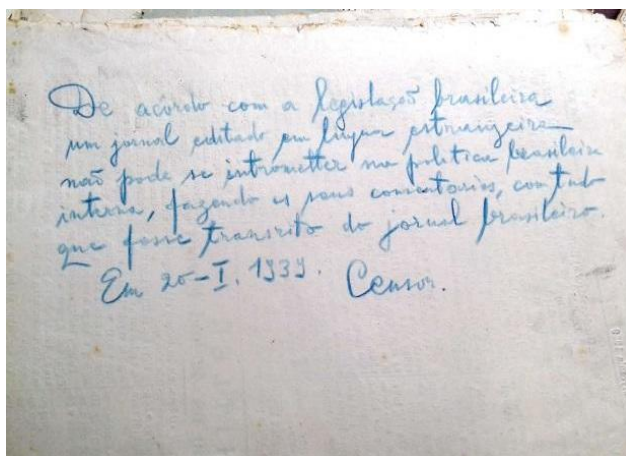 De acôrdo com a legislação brasileira
um jornal editado em lingua estrangeira
não pode se intrometter na politica brasileira
interna, fazendo os seus comentarios, com tudo
que fosse transcrito do jornal brasileiro.
Em 20-I. 1939. Censor.